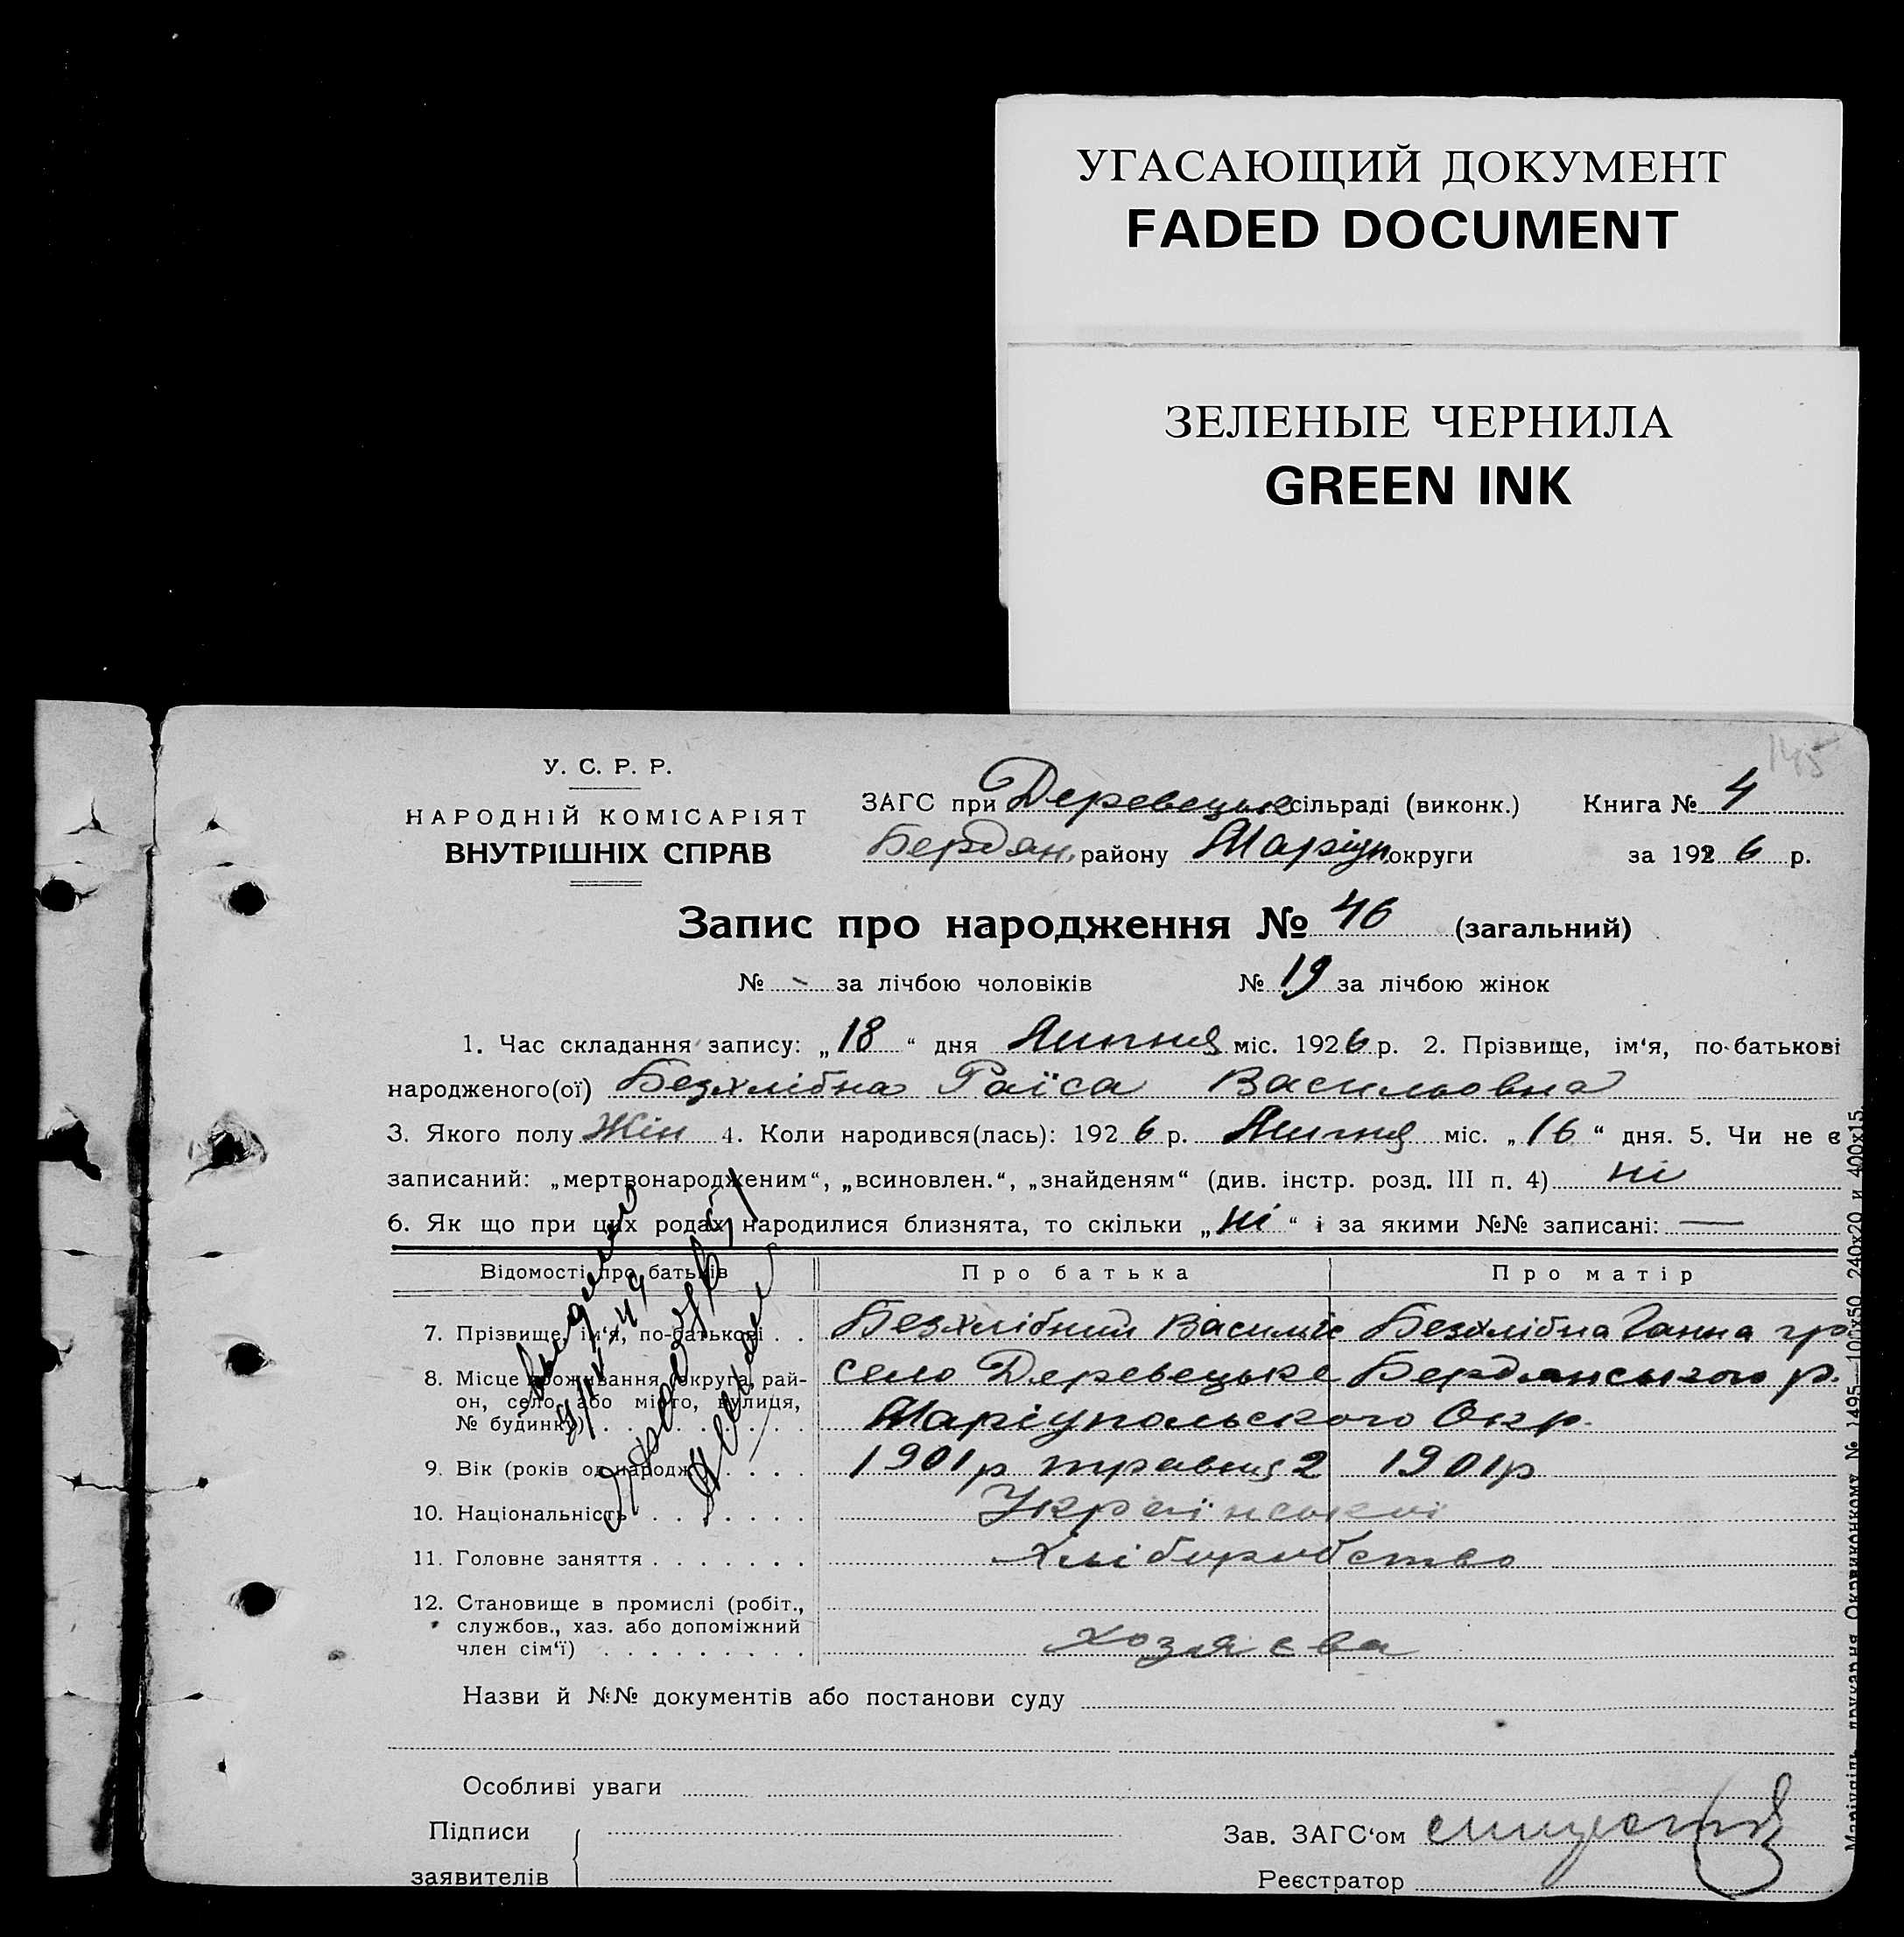 УГАСАЮЩИЙ ДОКУМЕНТ
FADED DOCUMENT
ЗЕЛЕНЫЕ ЧЕРНИЛА
GREEN INK
145
У. С. Р. Р.
НАРОДНІЙ КОМІСАРІЯТ
ВНУТРІШНІХ СПРАВ
ЗАГС при Деревецьке сільраді (виконк.) Книга № 4
Бердян. району Маріуп округи за 1926 р.
Запис про народження № 46 (загальний)
№ - за лічбою чоловіків № 19 за лічбою жінок
1. Час складання запису: „18“ дня Липня міс. 1926 р. 2. Прізвище, ім‘я, по-батькові
народженого(ої) Безхлібна Раїса Васильовна
3. Якого полу Жін 4. Коли народився(лась): 1926 р. Липня міс. „16“ дня. 5. Чи не є
записаний: „мертвонародженим“, „всиновлен.“, „знайденям“ (див. інстр. розд. III п. 4) ні
6. Як що при цих родах народилися близнята, то скільки „ні“ і за якими №№ записані: —
Відомості про батьків Про батька Про матір
7. Прізвище, ім‘я, по-батькові . . Безхлібний Василь Безхлібна Ганна
8. Місце проживання (округа, рай- село Деревецьке Бердянського р.
он, село, або місто, вулиця,
№ будинку) Маріупольского Окр.
9. Вік (років од народж.) . . . . 1901 р травня 2 1901 р
10. Національність . . . . . . . Українські
11. Головне заняття . . . . . . . Хліборобство
12. Становище в промислі (робіт.,
службов., хаз. або допоміжний
член сім‘ї) . . . . . . . . . хозяєва
Назви й №№ документів або постанови суду
Особливі уваги
Підписи
заявителів
Зав. ЗАГС‘ом
Реєстратор
Маріупіль, друкарня Окрвиконкому № 1495—100х50 240х20 и 400х15